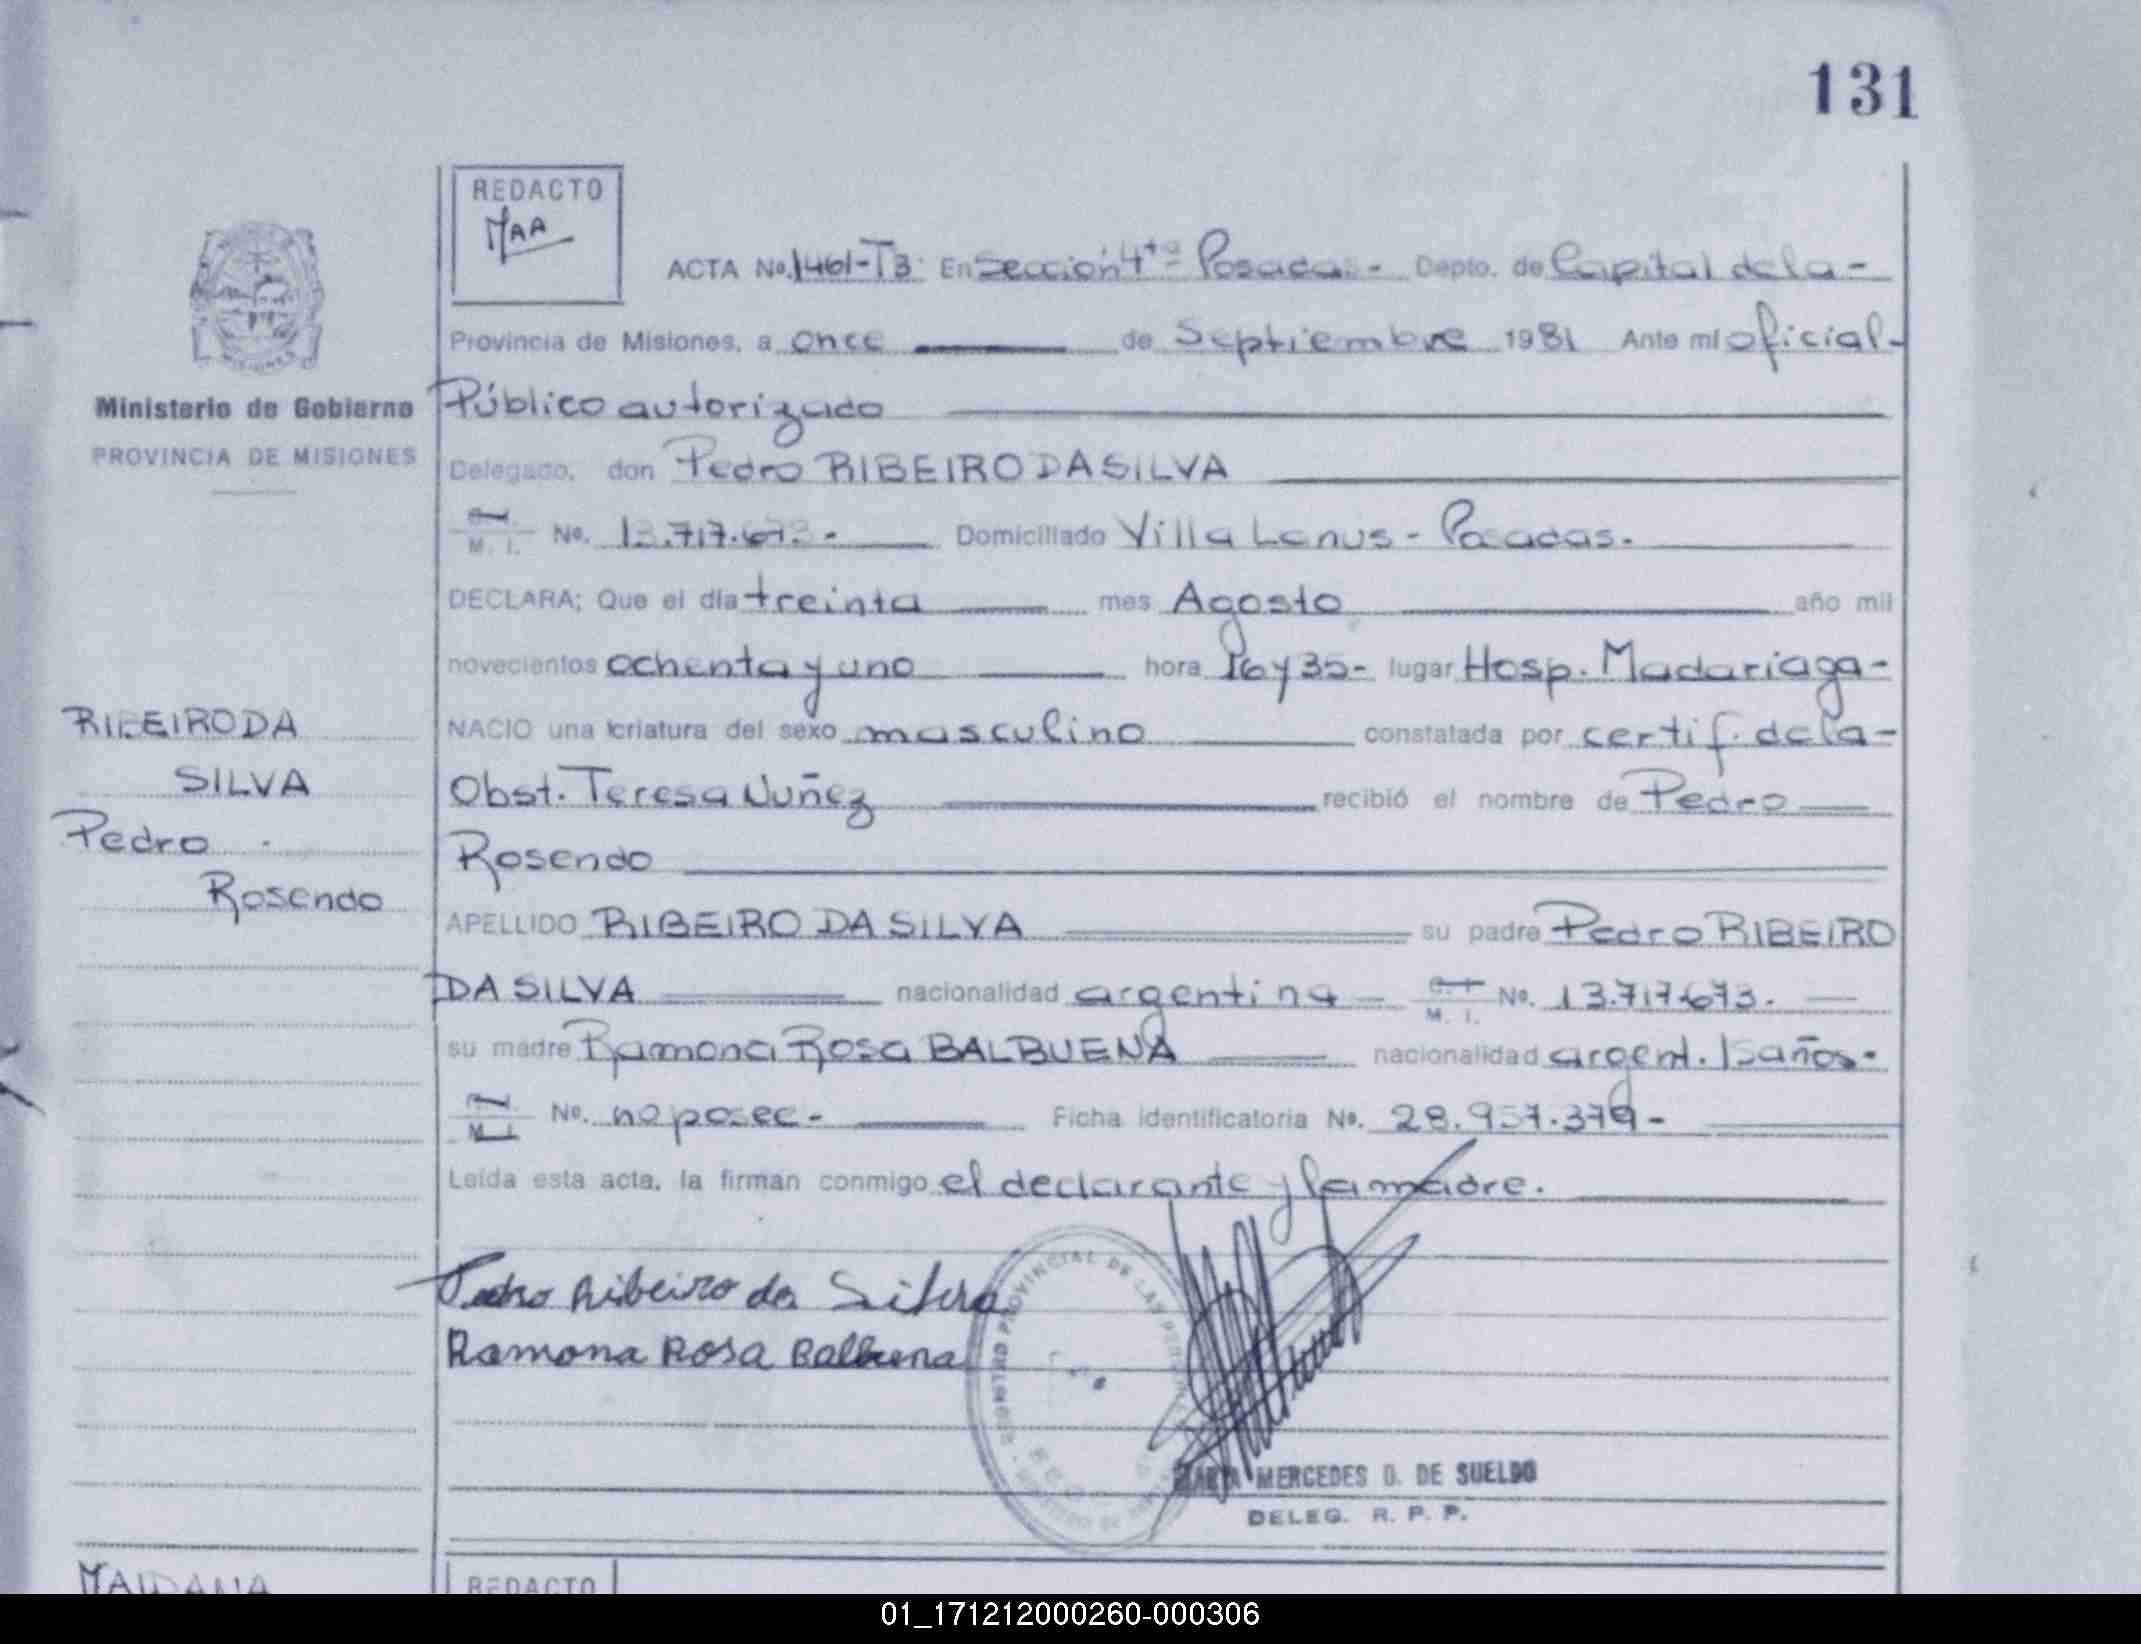 131
REDACTO
MAA
ACTA No. 1461-T3. En Sección 4ta- Posadas.- Depto. de Capital de la-
Provincia de Misiones, a once de Septiembre 1981 Ante mí oficial-
Ministerio de Gobierno
Público autorizado
PROVINCIA DE MISIONES
Delegado, don Pedro RIBEIRO DA SILVA
M. I. No. 13.717.673.- Domiciliado Villa Lanus - Posadas.
DECLARA; Que el día treinta mes Agosto año mil
novecientos ochenta y uno hora 16 y 35- lugar Hosp. Madariaga-
RIBEIRO DA
SILVA
Pedro
Rosendo
NACIO una criatura del sexo masculino constatada por certif. de la-
Obst. Teresa Nuñez recibió el nombre de Pedro
Rosendo
APELLIDO RIBEIRO DA SILVA su padre Pedro RIBEIRO
DA SILVA nacionalidad argentina C. I. M. I. No. 13.717.673.-
su madre Ramona Rosa BALBUENA nacionalidad argent. años.
M. I. No. no posee.- Ficha identificatoria No. 28.957.379-
Leída esta acta, la firman conmigo el declarante y la madre.
Pedro Ribeiro da Silva
Ramona Rosa Balbuena
REGISTRO PROVINCIAL DE LAS
MERCEDES D. DE SUELDO
DELEG. R. P. P.
MAIDANA
REDACTO
01_171212000260-000306